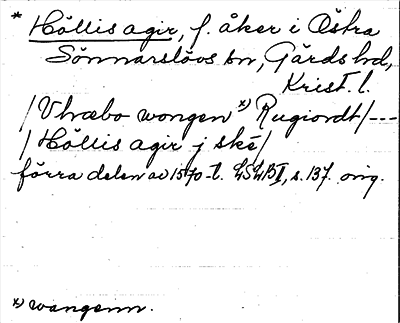 * Höllis agir, f. åker i Östra
Sönnarslövs sn, Gärds hd,
Krist. l.
/ Vlræbo wongen *) Rugiordt / ---
/ Höllis agir j ské /
förra delen av 1570-t. LSLBII, s. 137. orig.
*) wangenn.